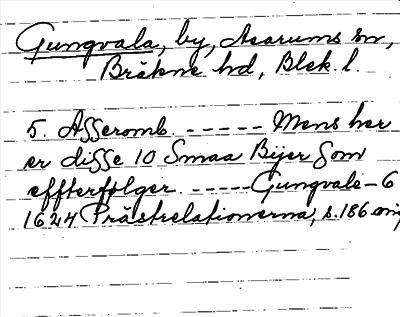 Gungvala, by, Asarums sn,
Bräkne hd, Blek. l.
5. Asseromb. ----- Mens her
er disse 10 Smaa Byer som
effterfølger. ----- Gungvale - 6
1624 Prästrelationerna, s. 186